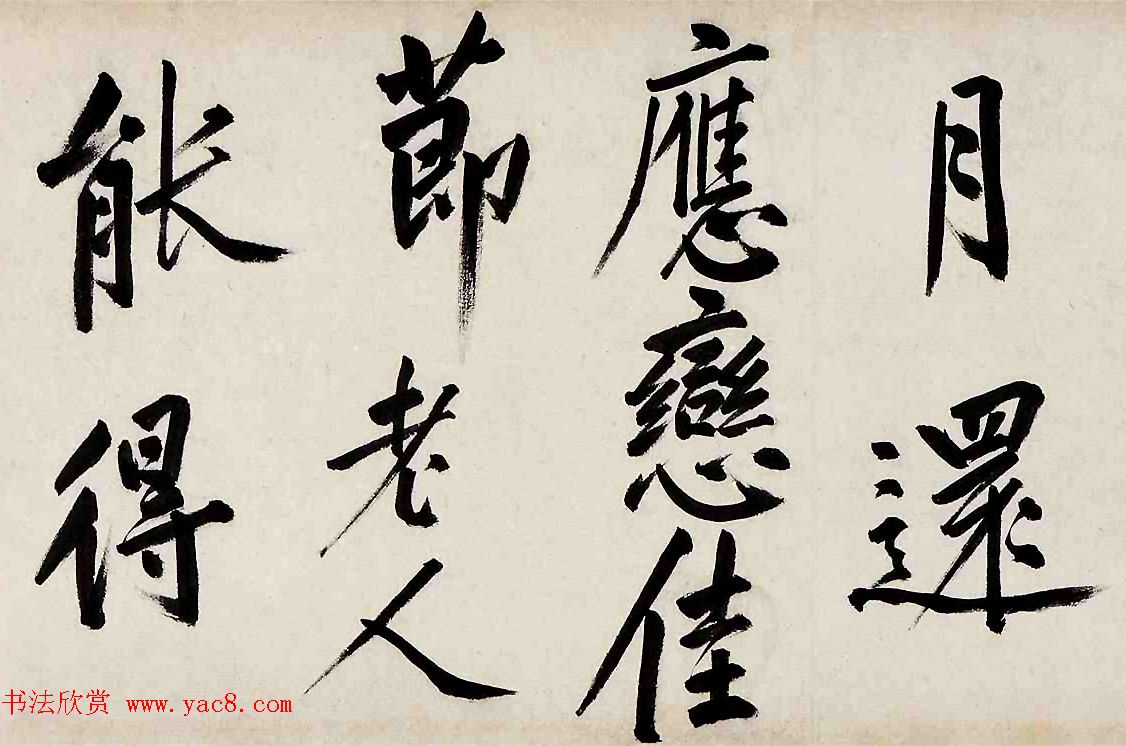 月還
應戀佳
莭老人
能得
书法欣赏 www.yac8.com